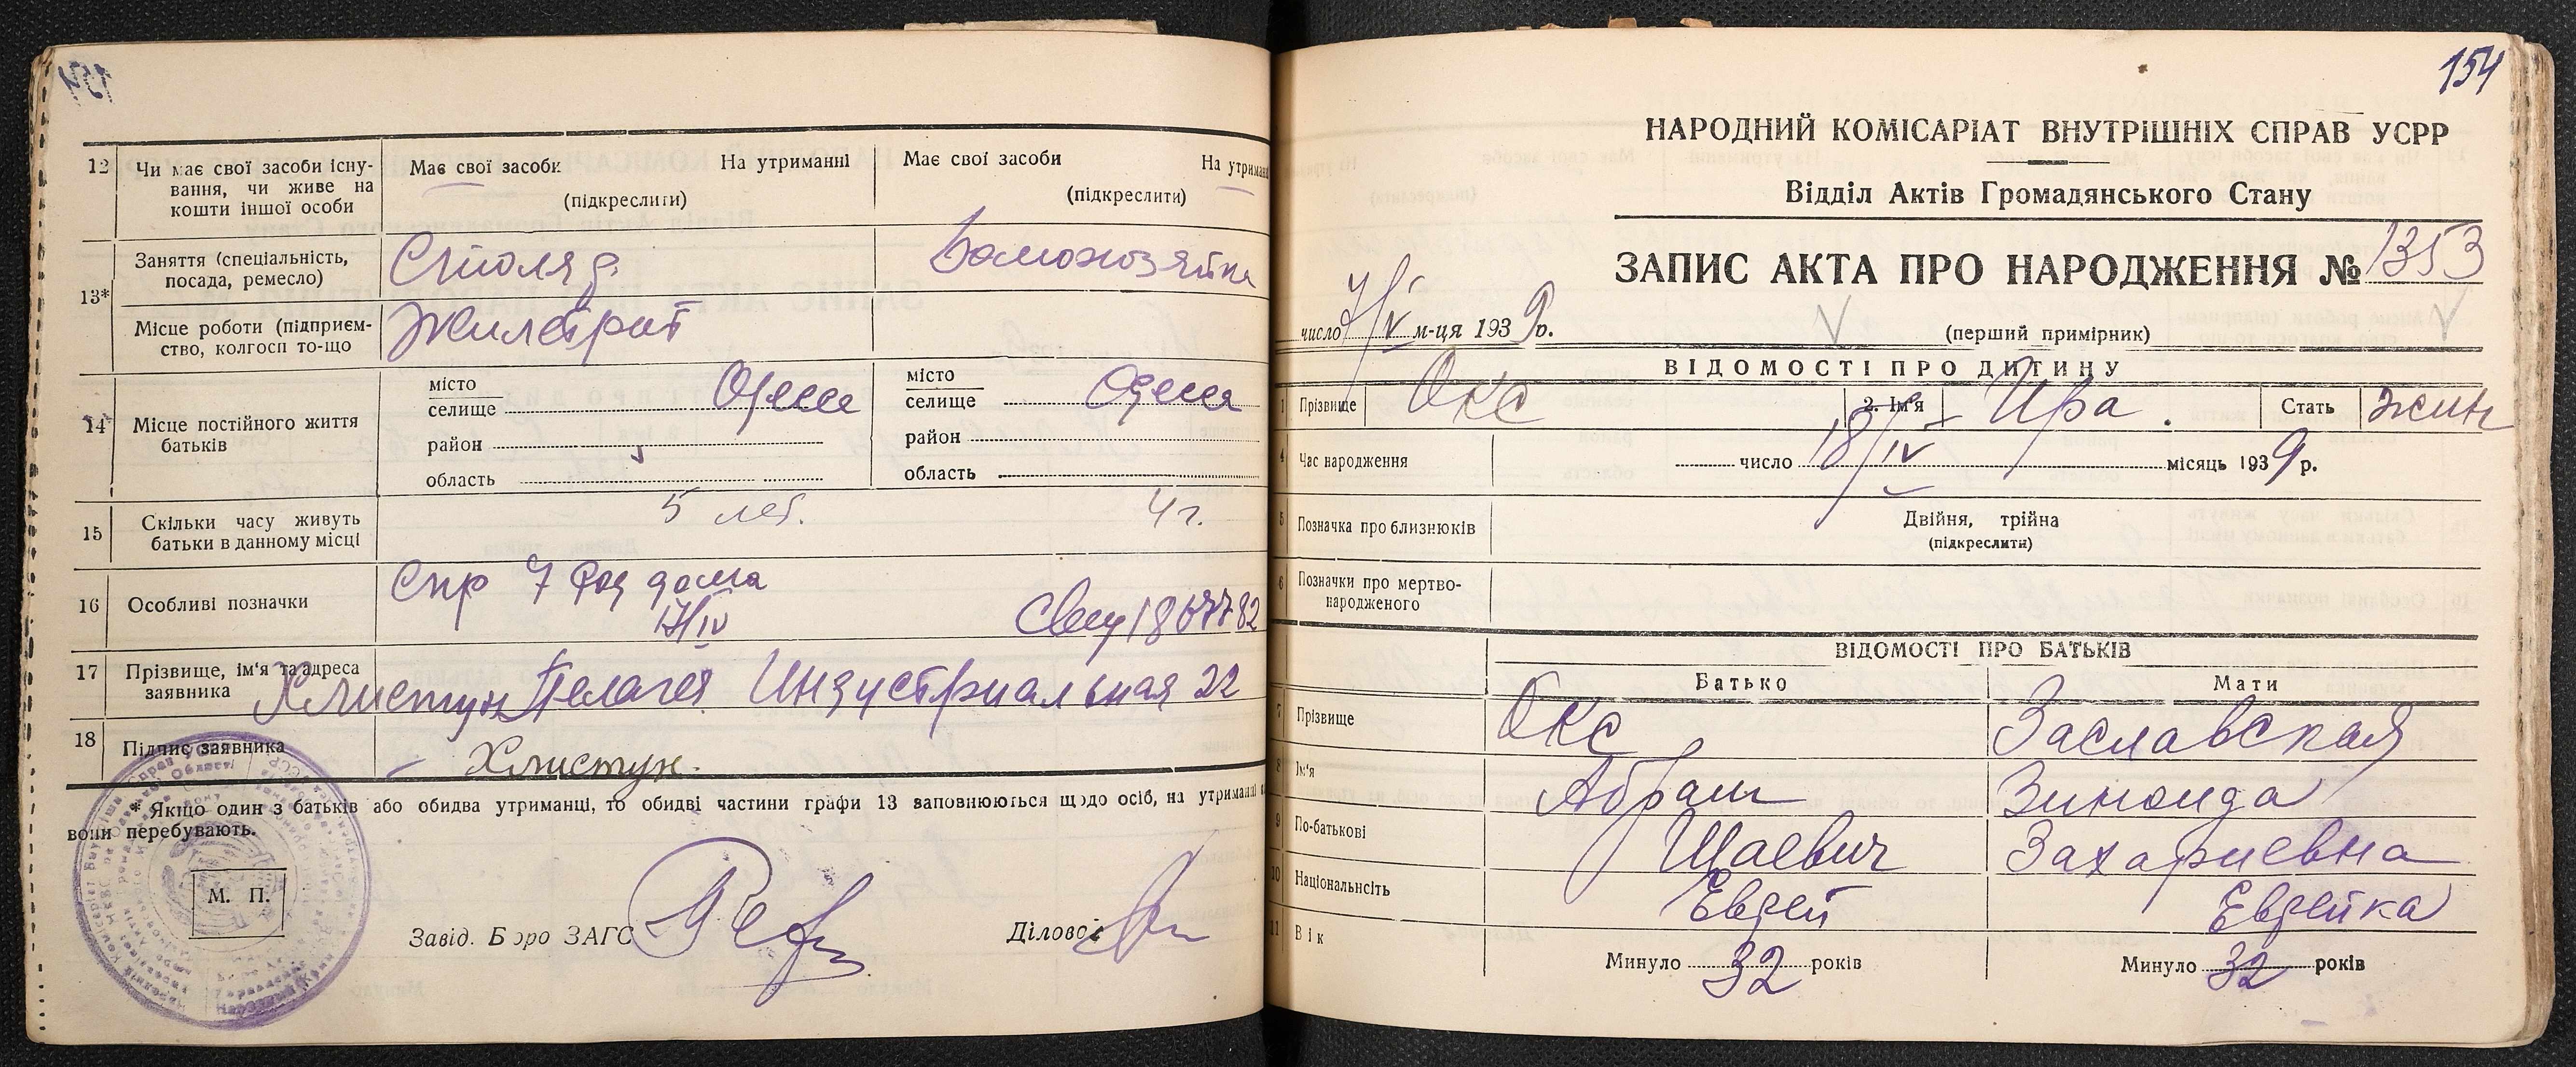 12
Чи має свої засоби існу-
вання, чи живе на
кошти іншої особи
Має свої засоби
На утриманні
(підкреслити)
Має свої засоби
На утриманн
(підкреслити)
13*
Заняття (спеціальність,
посада, ремесло)
Столяр.
Домохозяйка
Місце роботи (підприєм-
ство, колгосп то-що
14
Місце постійного життя
батьків
місто
селище
Одесса
район
область
місто
селище
Одесса
район
область
15
Скільки часу живуть
батьки в данному місці
5 лет.
4 г.
16
Особливі позначки
Спр 7 Род дома
17/IV
17
Прізвище, ім'я та адреса
заявника
Хлистун Пелагея Индустриальная 22
18
Підпис заявника
Хлистун.
* Якщо один з батьків або обидва утриманці, то обидві частини графи 13 заповнюються щодо осіб, на утриманні
вони перебувають.
М. П.
Завід. Бюро ЗАГС
Діловод
154
НАРОДНИЙ КОМІСАРІАТ ВНУТРІШНІХ СПРАВ УСРР
Відділ Актів Громадянського Стану
ЗАПИС АКТА ПРО НАРОДЖЕННЯ № 1353
число м-ця 1939р.
(перший примірник)
ВІДОМОСТІ ПРО ДИТИНУ
1 Прізвище Окс 2. Ім'я Ира. Стать жин
4 Час народження число 18/IV місяць 1939 р.
5 Позначка про близнюків
Двійня, трійна
(підкреслити)
6 Позначки про мертво-
народженого
ВІДОМОСТІ ПРО БАТЬКІВ
Батько Мати
7 Прізвище Окс Заславская
8 Ім'я Абрам Зиноида
9 По-батькові Шаевич Захариевна
10 Національність Еврей Еврейка
11 Вік Минуло 32 років Минуло 32 років